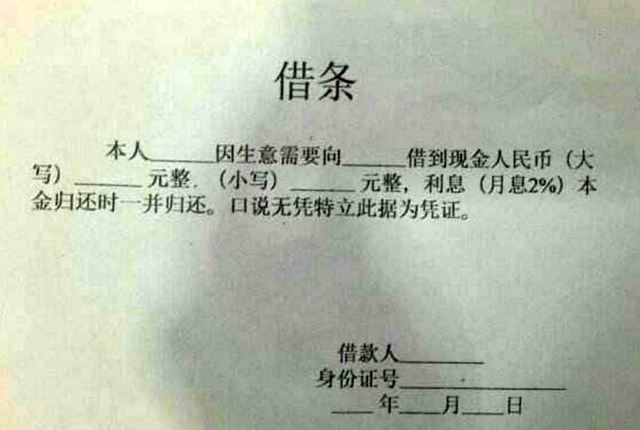 借条
本人______因生意需要向______借到现金人民币（大
写）______ 元整.（小写）______ 元整，利息（月息2%）本
金归还时一并归还。口说无凭特立此据为凭证。
借款人________
身份证号________________
____年____月____日